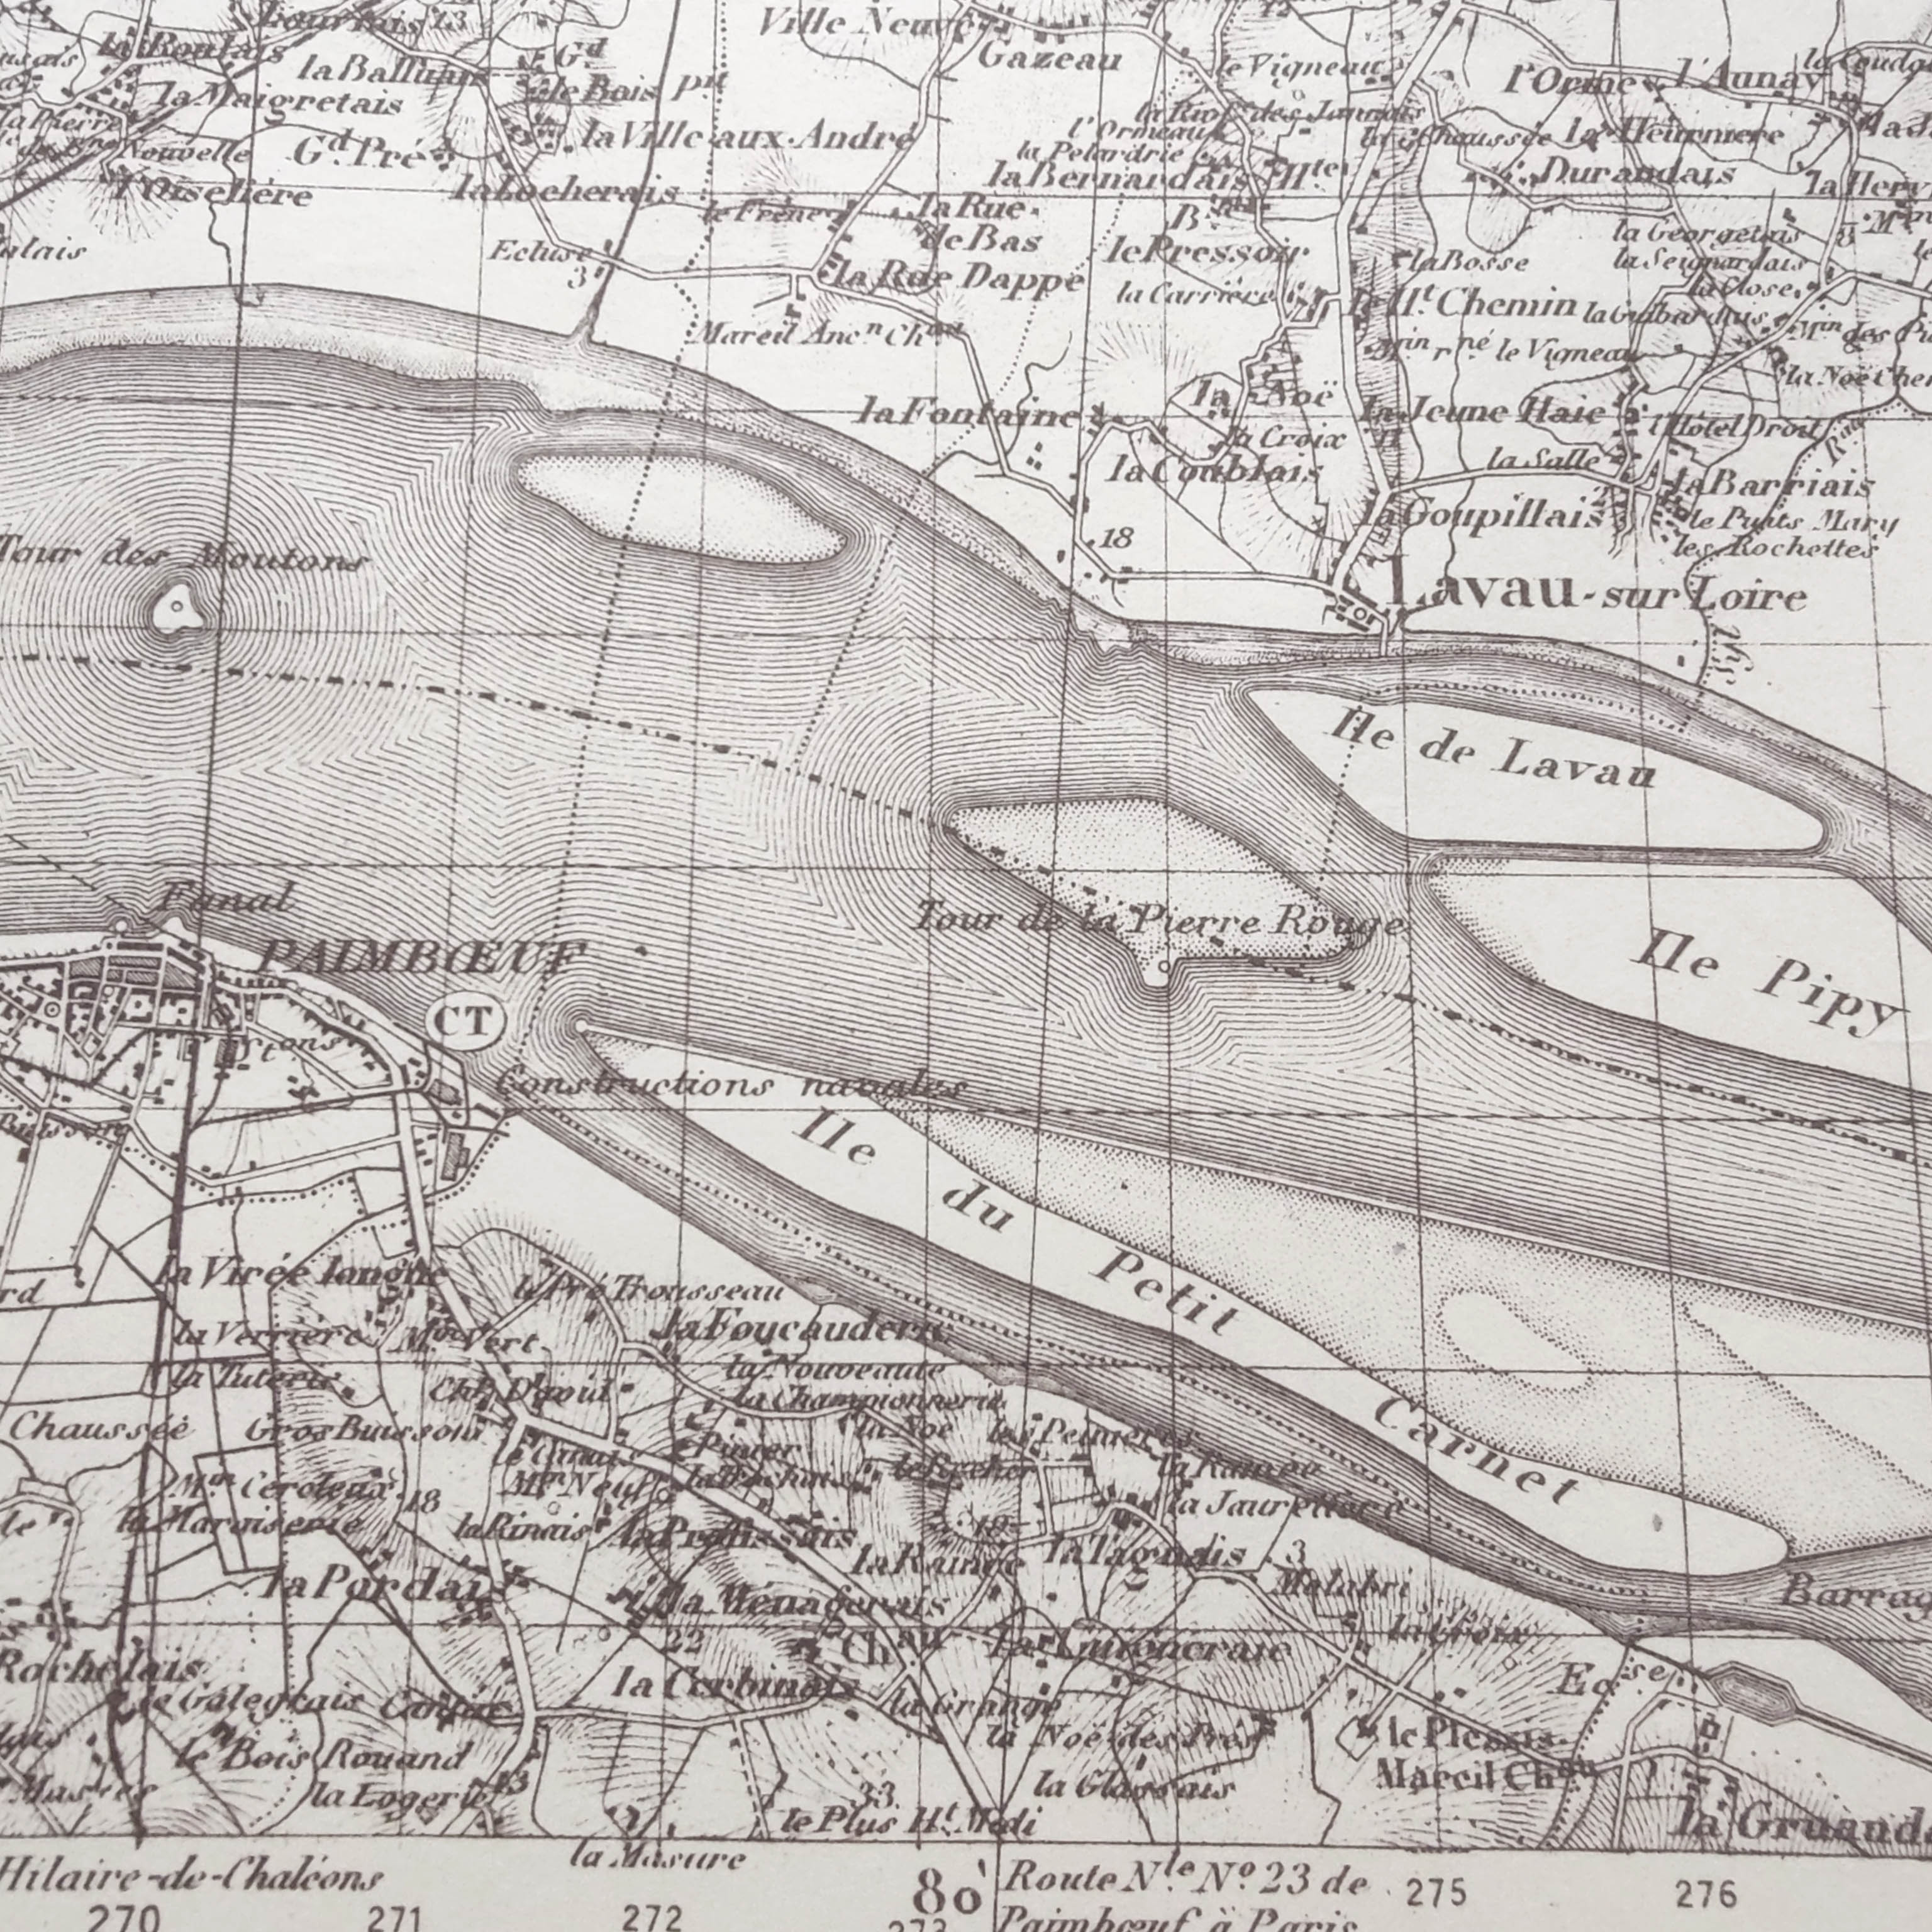 la Roulais
13
Gd
Ville Neuve
Gazeau
le Vigneau
l'Orme
l'Aunay
le Bois
pit
la Maigretais
la Ville aux André
l'Ormeau
la Heurniere
Gd Pré
Nouvelle
la Pelardrie
la Bernardais
Hte
Durandais
l'Oiselière
la Locherais
le Frêne
la Rue
de Bas
le Pressoir
la Georgetais
la Seignardais
Ecluse
3
la Rue Dappe
la Bosse
la Carrière
Ht Chemin
la Close
Mareil Ancn Chau
le Vigneau
la Noë
la Fontaine
la Jeune Haie
l'Hôtel Droit
la Croix
la Coublais
la Salle
la Barriais
la Goupillais
le Puits Mary
les Rochettes
18
Tour des Moutons
Lavau-sur Loire
Ile de Lavau
Fanal
Tour de la Pierre Rouge
PAIMBŒUF
Ile Pipy
CT
Constructions navales
Ile du Petit Carnet
la Virée longue
le Pré Trousseau
la Verrière
Min Vert
la Foucauderie
la Nouveauté
la Tuterie
la Championnerie
Chaussée
Gros Buisson
la Noë
le Pinier
Min Neuf
le Rocher
18
la Rinais
la Jaurettere
la Prouissais
la Ramée
la Tagnais
3
Malabri
la Pordais
la Ménagerais
Barrag
22
Chau
la Guioncraie
la Croix
Rochelais
Ecse
la Corbinais
la Grange
la Noë des Prés
le Plessis-
Mareil Chau
le Bois Rouand
la Logerie
13
la Glassais
33
le Plus Ht Medi
la Gruand
la Masure
Hilaire-de-Chaléons
80'
Route Nle No 23 de
Paimbœuf à Paris
270
271
272
273
275
276